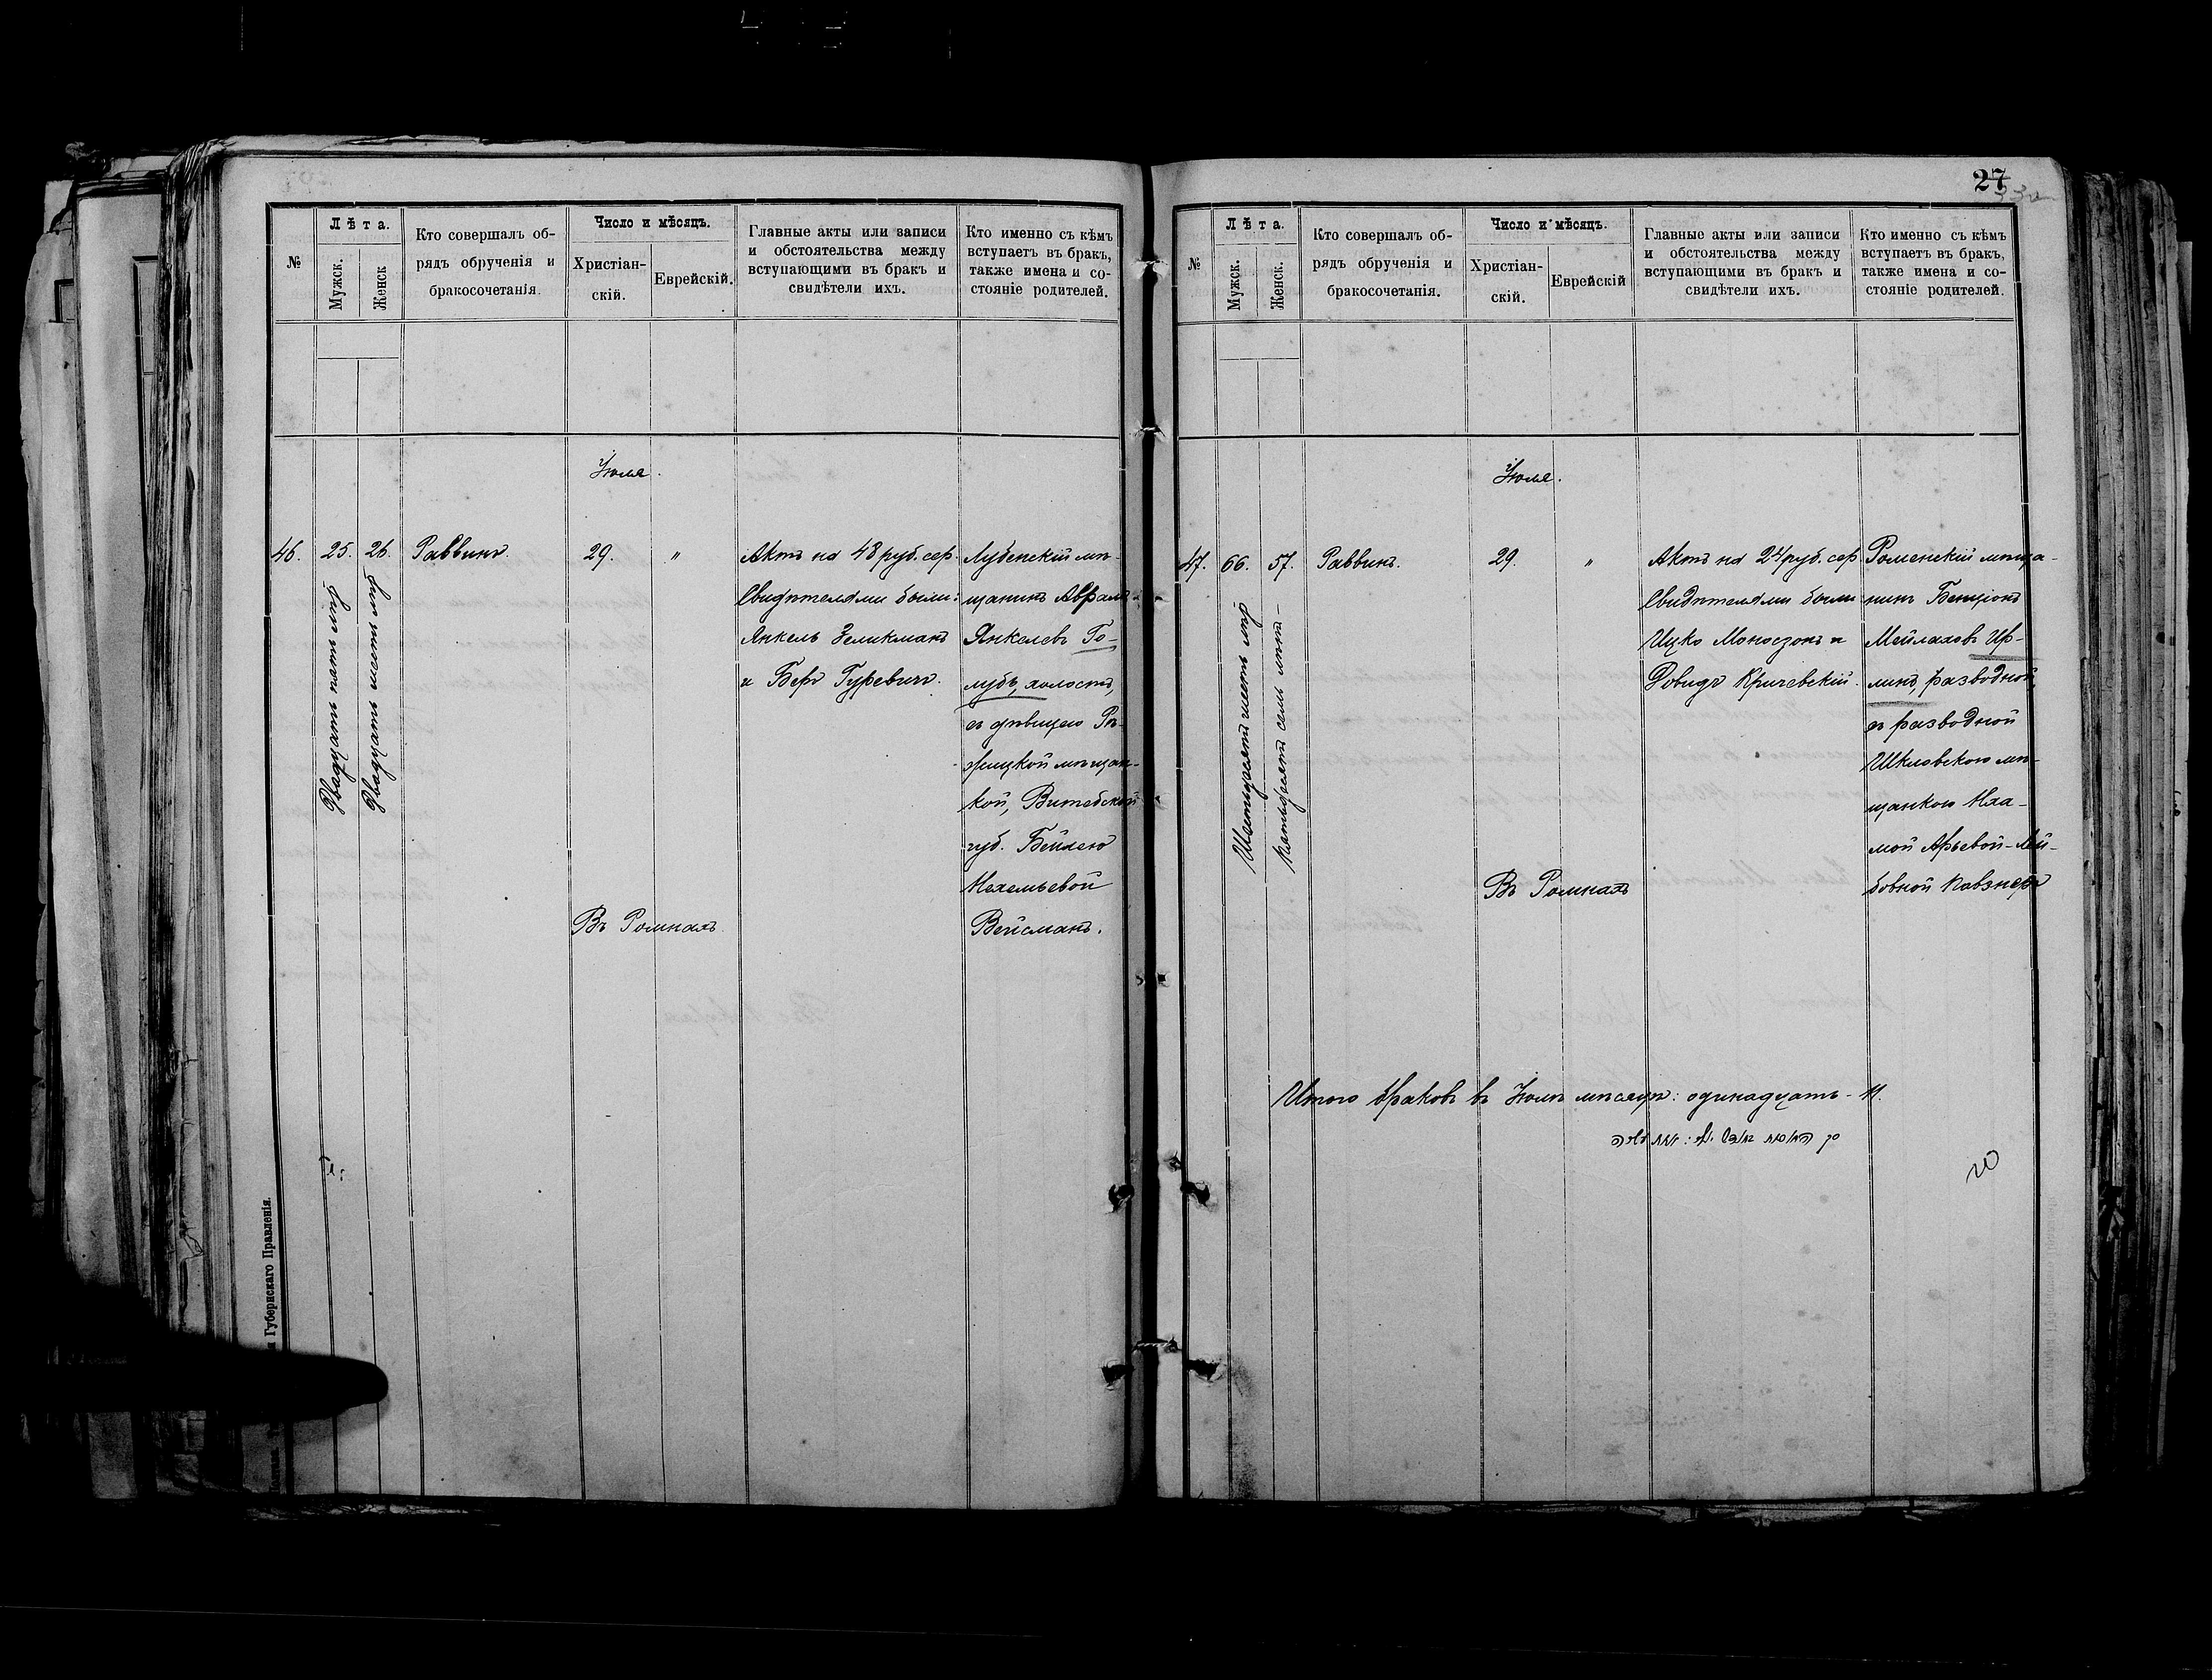 27
Лѣта.
Число и мѣсяцъ.
№
Мужск.
Женск
Кто совершалъ об-
рядъ обрученія и
бракосочетанія.
Христіан-
скій.
Еврейскій.
Главные акты или записи
и обстоятельства между
вступающими въ бракъ и
свидѣтели ихъ.
Кто именно съ кѣмъ
вступаетъ въ бракъ,
также имена и со-
стояніе родителей.
Іюля.
46.
25.
26.
Двадцать пять лѣтъ
Двадцать шесть лѣтъ
Раввинъ.
29.
"
Актъ на 48 руб. сер.
Свидѣтелями были:
Янкель Зеликманъ
и Беръ Гуревичъ.
Лубенскій мѣ-
щанинъ Авраамъ
Янкелевъ Го-
лубъ, холостъ,
съ дѣвицею Рѣ-
жицкой мѣщан-
кой, Витебской
губ. Бейлею
Нехемьевой
Вейсманъ.
Въ Ромнахъ
Губернскаго Правленія.
Лѣта.
Число и мѣсяцъ.
№
Мужск.
Женск.
Кто совершалъ об-
рядъ обрученія и
бракосочетанія.
Христіан-
скій.
Еврейскій
Главные акты или записи
и обстоятельства между
вступающими въ бракъ и
свидѣтели ихъ.
Кто именно съ кѣмъ
вступаетъ въ бракъ,
также имена и со-
стояніе родителей.
Іюля.
47.
66.
57.
Шестьдесятъ шесть лѣтъ
Пятьдесятъ семь лѣтъ
Раввинъ.
29.
"
Актъ на 24 руб. сер
Свидѣтелями были
Ицко Моносзонъ и
Довидъ Кричевскій.
Роменскій мѣща-
нинъ Бенціонъ
Мейлаховъ Ир-
линъ, разводной,
съ разводной
Шкловскою мѣ-
щанкою Нха-
мой Арьевой-Лей-
бовной Повзнеръ
Въ Ромнахъ
Итого браковъ въ Іюлѣ мѣсяцѣ: одинадцать - 11.